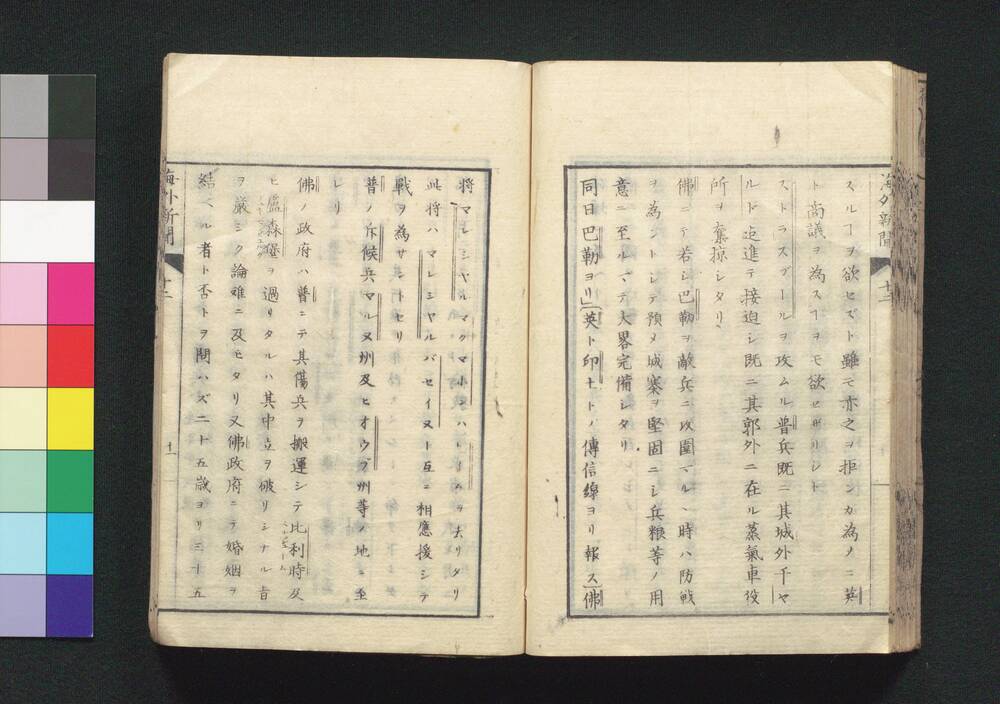 海外新聞 十二
スルヿヲ欲セズト雖モ亦之ヲ拒ンカ為メニ英
ト商議ヲ為スヿヲモ欲セザリシト
ストラスブールヲ攻ムル普兵既ニ其城外千ヤ
ルドニ迫進テ接迫シ既ニ其郭外ニ在ル蒸氣車役
所ヲ奪掠シタリ
佛ニテ若シ巴勒ヲ敵兵ニ攻圍サルヽ時ハ防戦
ヲ為ントシテ預メ城寨ヲ堅固ニシ兵粮等ノ用
意ニ至ルマデ大畧完備シタリ
同日巴勒ヨリ「英ト印土トノ傳信線ヨリ報ス「佛
将マレシヤルマクマホン
此将ハマレシヤルバセイヌト互ニ相應援シテ
戰ヲ為サントセリ
普ノ斥候兵マルヌ圳及ヒオウブ州等ノ地ニ至
レリ
佛ノ政府ハ普ニテ其傷兵ヲ搬運シテ比利時及
ヒ盧森堡ヲ過リタルハ其中立ヲ破リシナル旨
ヲ厳シク論難ニ及モタリ又佛政府ニテ婚姻ヲ
結ベル者ト否トヲ問ハズ二十五歳ヨリ三十五
海外新聞 十二 十一